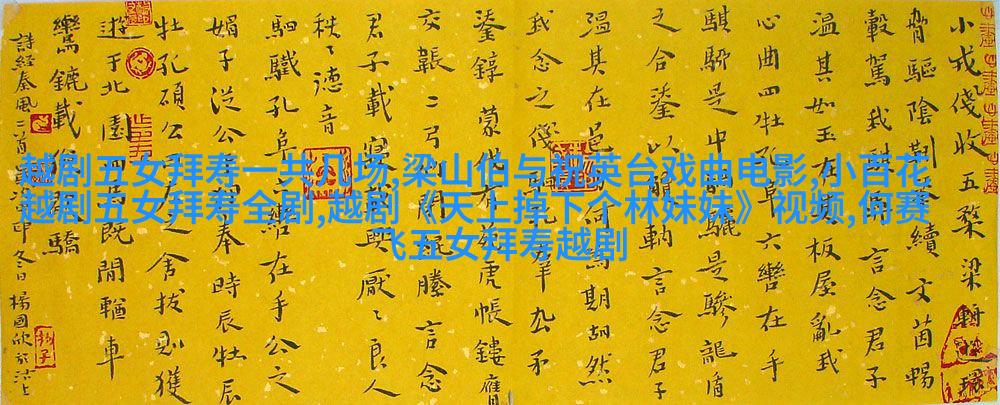 越剧五女拜寿一共几场,梁山伯与祝英台戏曲电影,小百花
越剧五女拜寿全剧,越剧《天上掉下个林妹妹》视频,何赛
飞五女拜寿越剧
小戎俴收五楘梁輈
脅驅陰靷鋈續文茵暢
轂駕我騏馵言念君子
溫其如玉在其板屋亂我
心曲四牡孔阜六轡在手
騏駵是中騧驪是驂龍盾
之合鋈以觼軜言念君子
溫其在邑方何爲期胡然
我念之俴駟孔羣厹矛
鋈錞蒙伐有苑虎帳鏤膺
交韔二弓竹閉緄縢言念
君子載寢載興厭〻良人
秩〻德音
駟驖孔阜六轡在手公之
媚子從公于狩奉時辰牡辰
牡孔碩公曰左之舍拔則獲
遊于北園四馬既閒輶車
鸞鑣載獫歇驕
詩經秦風二首 冬日楊國欣